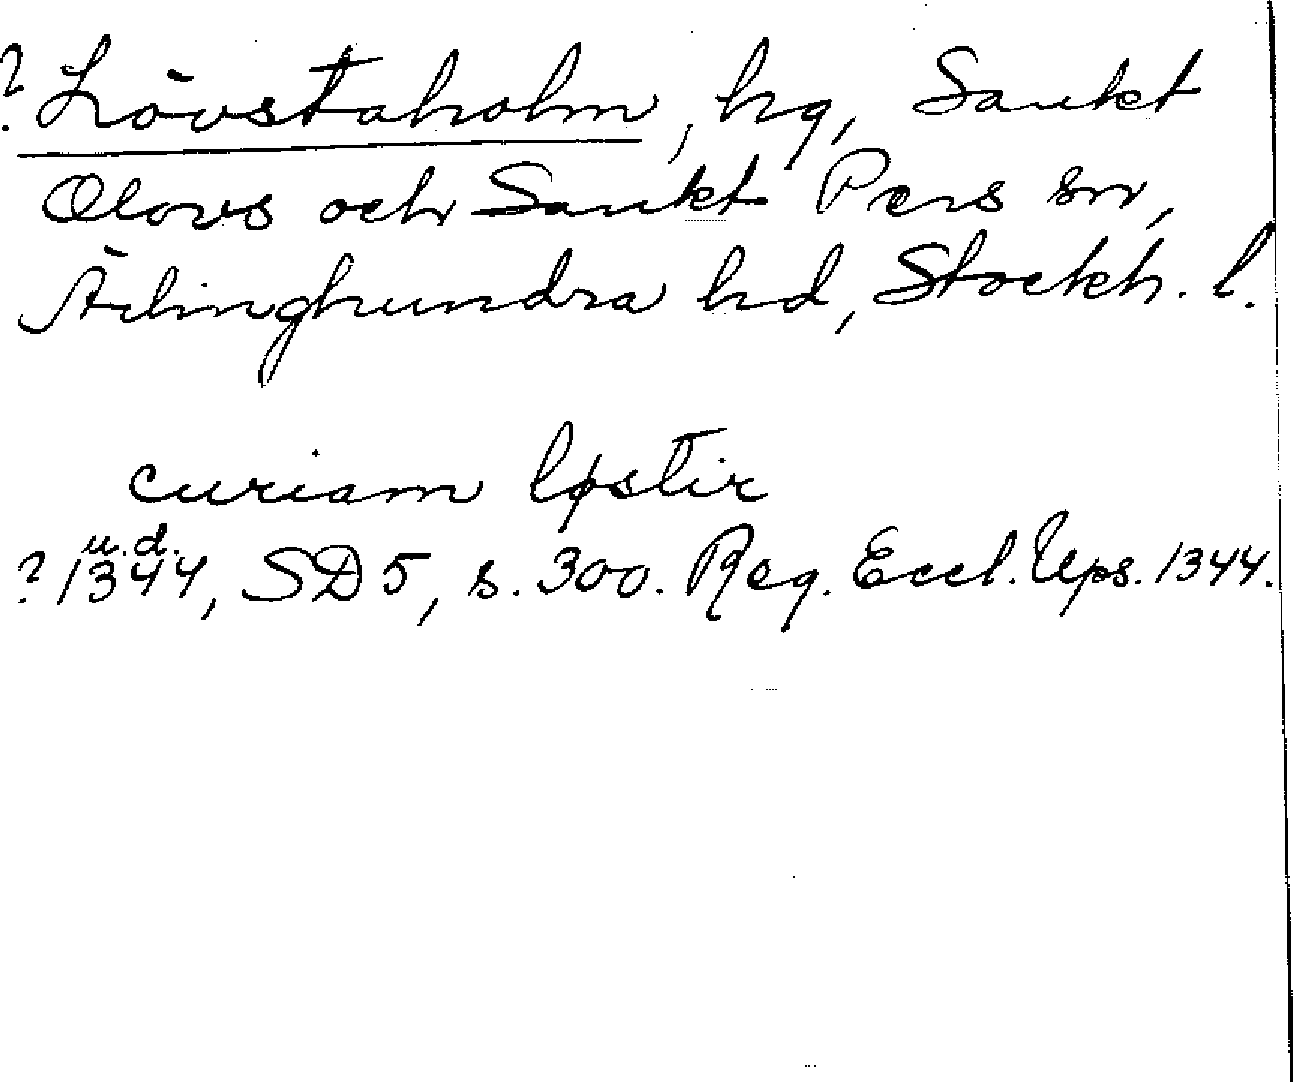 ? Lövstaholm, hg, Sankt
Olovs och Sankt Pers snr,
Ärlinghundra hd, Stockh. l.
curiam løstir
u.d.
? 1344, SD 5, s. 300. Reg. Eccl. Ups. 1344.